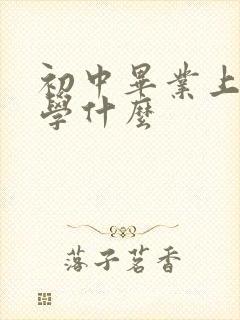 初中畢業上
學什麼
落子茗香